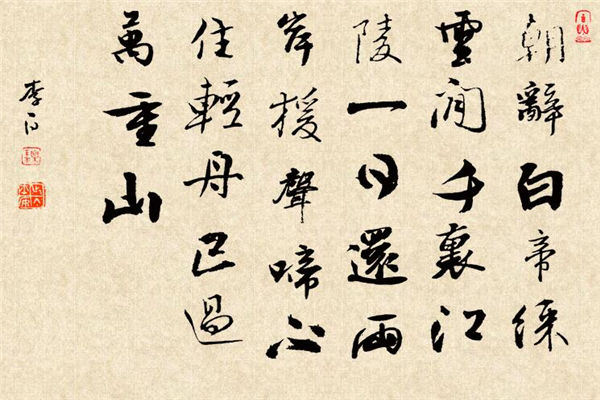 朝辭白帝綵
雲間千裏江
陵一日還兩
岸援聲啼不
住輕舟已過
萬重山
李白